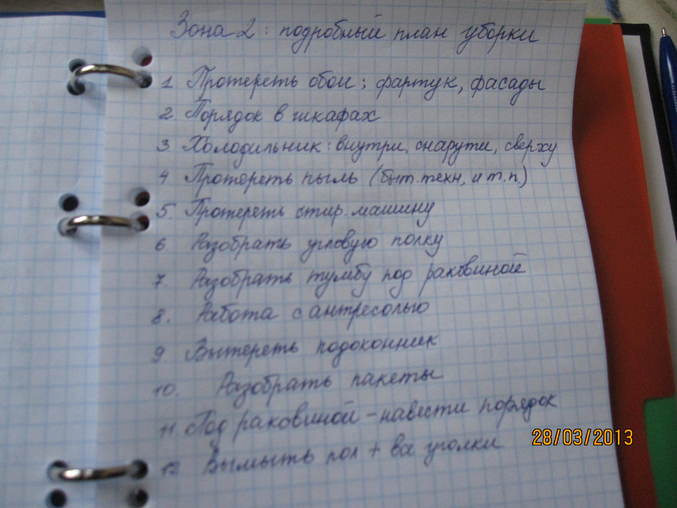 Зона 2: подробный план уборки
1 Протереть обои; фартук, фасады
2 Порядок в шкафах
3 Холодильник: внутри, снаружи, сверху
4 Протереть пыль (быт. техн, и т.п)
5. Протереть стир. машину
6 Разобрать угловую полку
7. Разобрать тумбу под раковиной
8. Работа с антресолью
9 Вытереть подоконник
10. Разобрать пакеты
11 Под раковиной - навести порядок
12 Вымыть пол + все уголки
28/03/2013